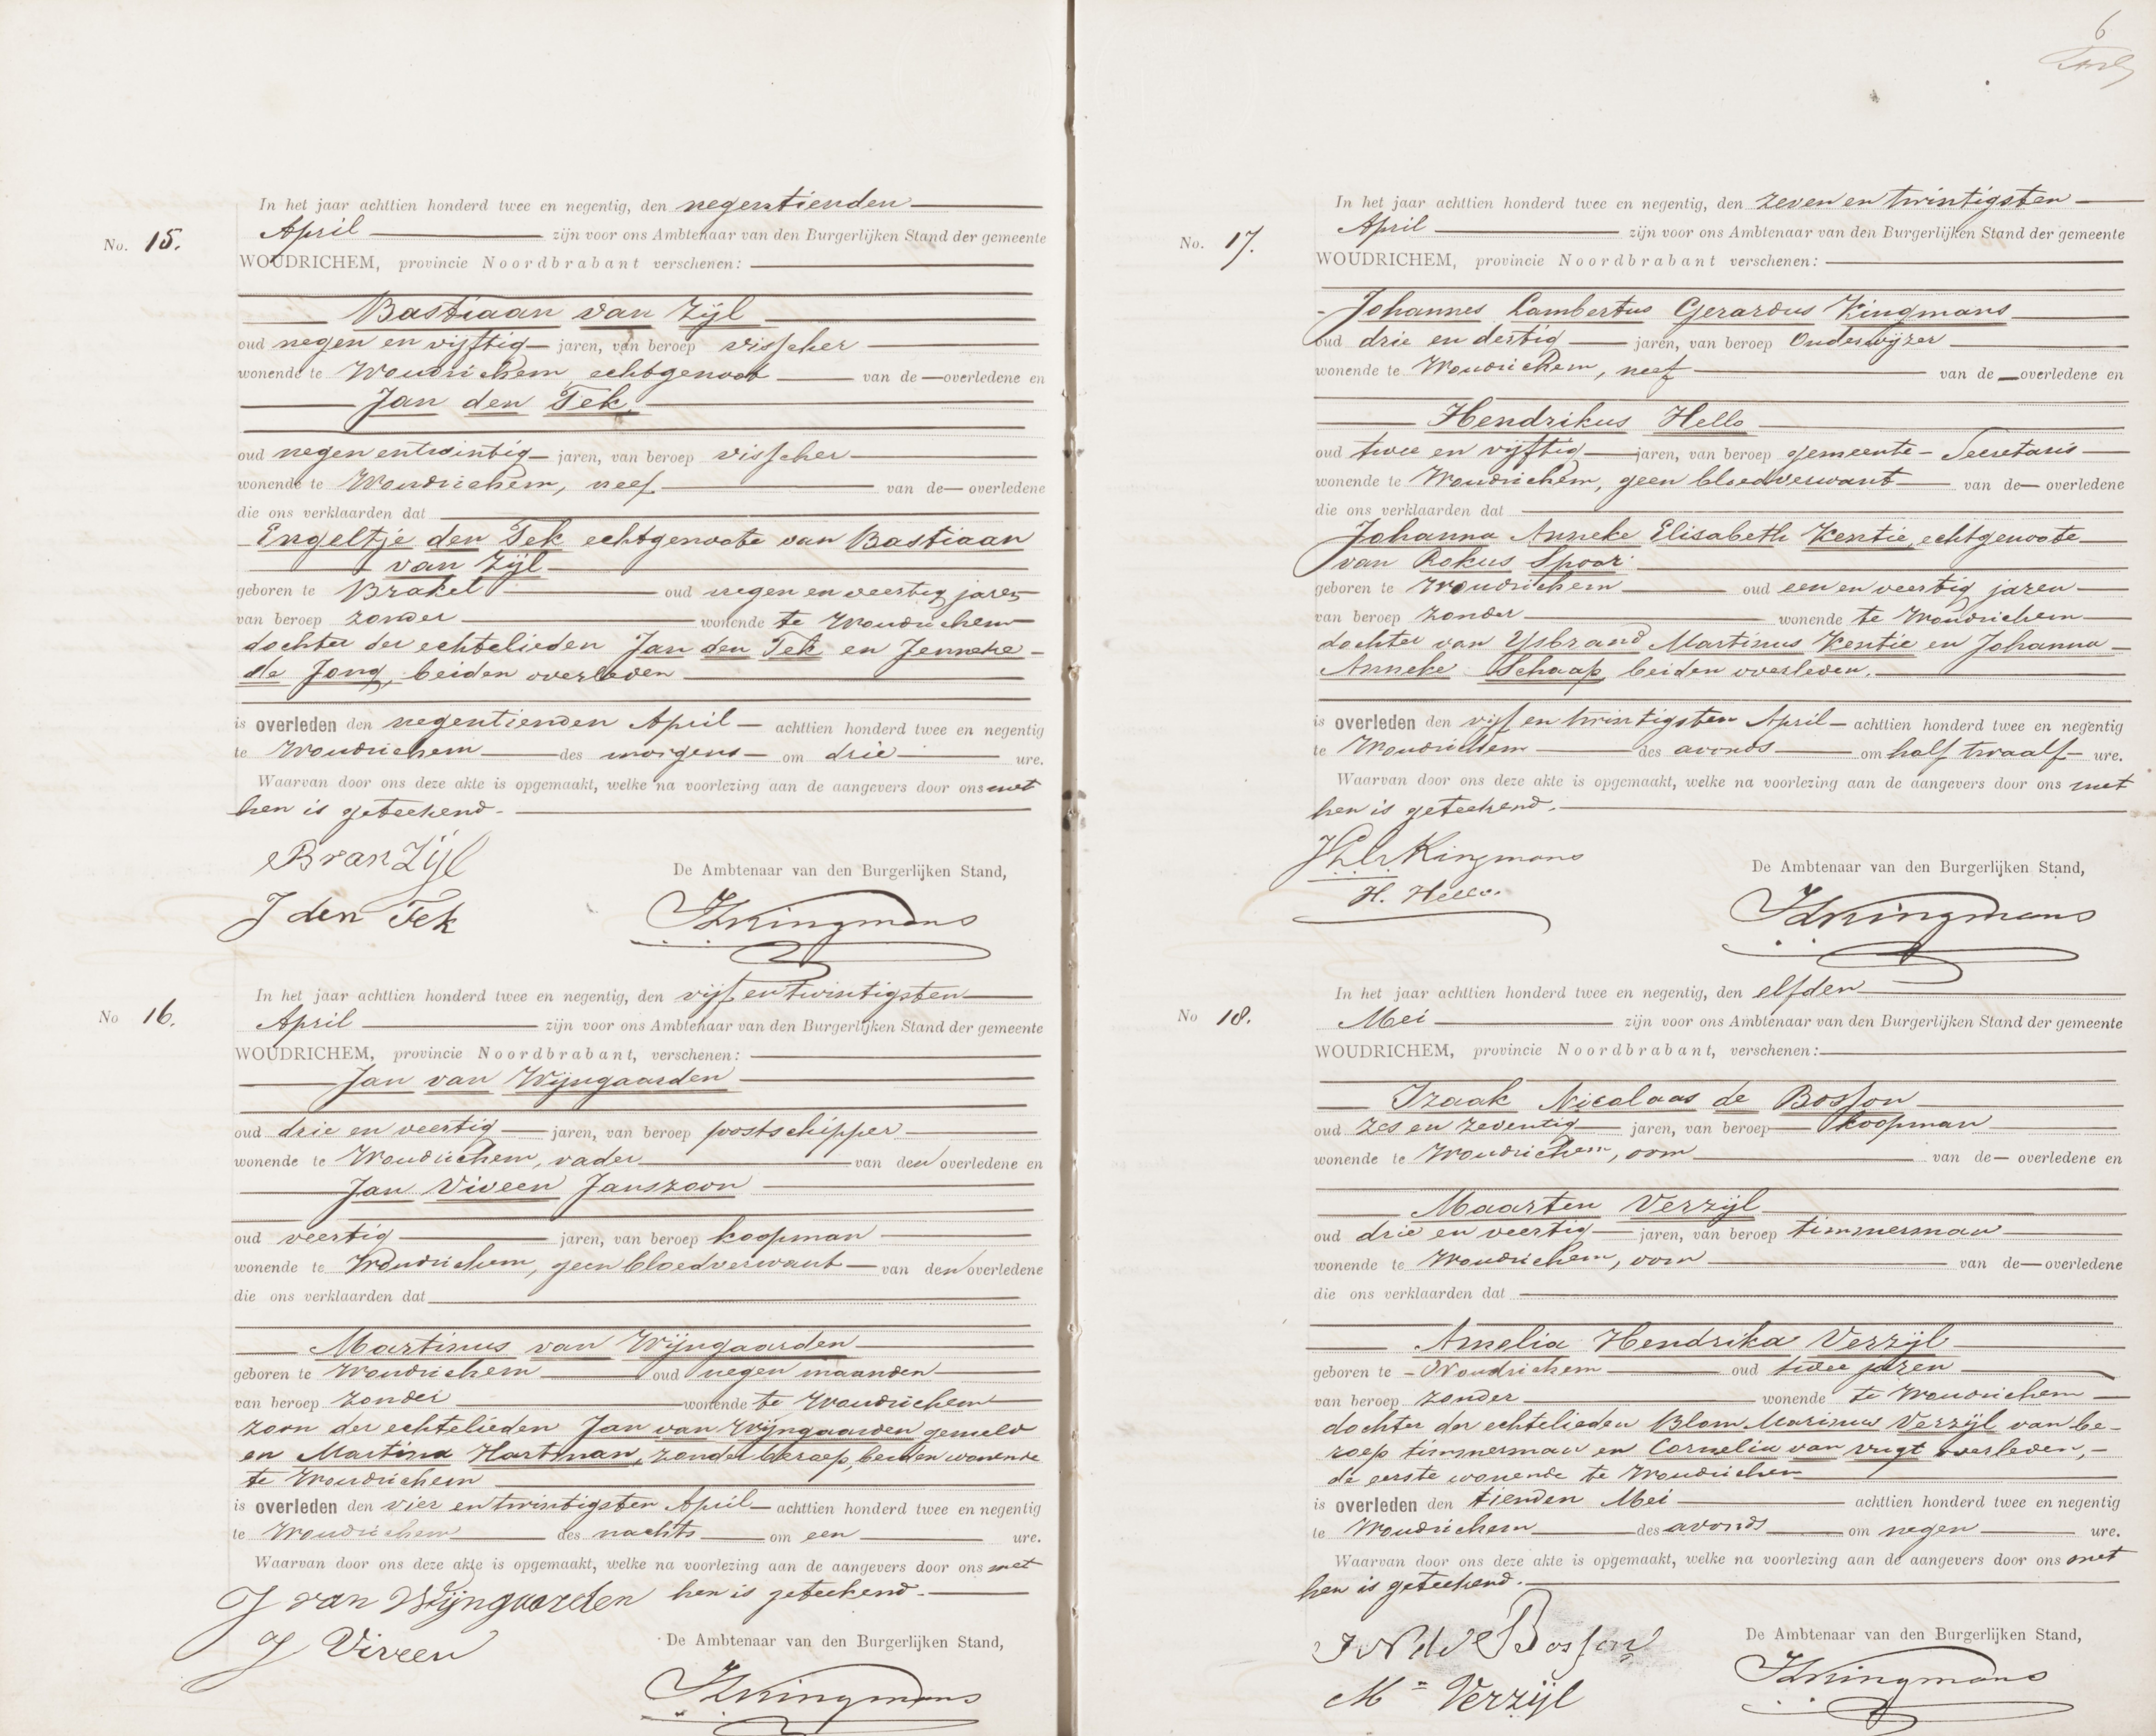 In het jaar achttien honderd twee en negentig, den negentienden
No. 15. April zijn voor ons Ambtenaar van den Burgerlijken Stand der gemeente
WOUDRICHEM, provincie Noordbrabant verschenen:
Bastiaan van Zijl
oud negen en vijftig jaren, van beroep visscher
wonende te Woudrichem echtgenoot van de overledene en
Jan den Tek,
oud negen entwintig jaren, van beroep visscher
wonende te Woudrichem, neef van de overledene
die ons verklaarden dat
Engeltje den Tek echtgenoote van Bastiaan
van Zijl
geboren te Brakel oud negen en veertig jaren
van beroep zonder wonende te Woudrichem
dochter der echtelieden Jan den Tek en Jenneke
de Jong, beiden overleden
is overleden den negentienden April achttien honderd twee en negentig
te Woudrichem des morgens om drie ure.
Waarvan door ons deze akte is opgemaakt, welke na voorlezing aan de aangevers door ons met
hen is geteekend.
B van Zijl
De Ambtenaar van den Burgerlijken Stand,
J den Tek
Kingmans
In het jaar achttien honderd twee en negentig, den vijf entwintigsten
No 16. April zijn voor ons Ambtenaar van den Burgerlijken Stand der gemeente
WOUDRICHEM, provincie Noordbrabant, verschenen:
Jan van Wijngaarden
oud drie en veertig jaren, van beroep postschipper
wonende te Woudrichem, vader van den overledene en
Jan Viveen Janszoon
oud veertig jaren, van beroep koopman
wonende te Woudrichem, geen bloedverwant van den overledene
die ons verklaarden dat
Martinus van Wijngaarden
geboren te Woudrichem oud negen maanden
van beroep zonder wonende te Woudrichem
zoon der echtelieden Jan van Wijngaarden gemeld
en Martina Hartman, zonder beroep, beiden wonende
te Woudrichem
is overleden den vier entwintigsten April achttien honderd twee en negentig
te Woudrichem des nachts om een ure.
Waarvan door ons deze akte is opgemaakt, welke na voorlezing aan de aangevers door ons met
J van Wijngaarden hen is geteekend.
J Viveen
De Ambtenaar van den Burgerlijken Stand,
Kingmans
6
In het jaar achttien honderd twee en negentig, den zeven en twintigsten
No. 17. April zijn voor ons Ambtenaar van den Burgerlijken Stand der gemeente
WOUDRICHEM, provincie Noordbrabant verschenen:
Johannes Lambertus Gerardus Kingmans
oud drie en dertig jaren, van beroep Onderwijzer
wonende te Woudrichem, neef van de overledene en
Hendrikus Hello
oud twee en vijftig jaren, van beroep gemeente-Secretaris
wonende te Woudrichem, geen bloedverwant van de overledene
die ons verklaarden dat
Johanna Anneke Elisabeth Kentie, echtgenoote
van Rokus Spoor
geboren te Woudrichem oud een en veertig jaren
van beroep zonder wonende te Woudrichem
dochter van Ysbrand Martinus Kentie en Johanna
Anneke Schaap, beiden overleden.
is overleden den vijf en twintigsten April achttien honderd twee en negentig
te Woudrichem des avonds om half twaalf ure.
Waarvan door ons deze akte is opgemaakt, welke na voorlezing aan de aangevers door ons met
hen is geteekend.
Kingmans
De Ambtenaar van den Burgerlijken Stand,
H. Hello.
Kingmans
In het jaar achttien honderd twee en negentig, den elfden
No 18. Mei zijn voor ons Ambtenaar van den Burgerlijken Stand der gemeente
WOUDRICHEM, provincie Noordbrabant, verschenen:
Izaak Nicolaas de Bosson
oud zes en zeventig jaren, van beroep koopman
wonende te Woudrichem, oom van de overledene en
Maarten Verzijl
oud drie en veertig jaren, van beroep timmerman
wonende te Woudrichem, oom van de overledene
die ons verklaarden dat
Amelia Hendrika Verzijl
geboren te Woudrichem oud twee jaren
van beroep zonder wonende te Woudrichem
dochter der echtelieden Blom Marinus Verzijl van be-
roep timmerman en Cornelia van Vugt overleden,
de eerste wonende te Woudrichem
is overleden den tienden Mei achttien honderd twee en negentig
te Woudrichem des avonds om negen ure.
Waarvan door ons deze akte is opgemaakt, welke na voorlezing aan de aangevers door ons met
hen is geteekend.
I N de Bosson
De Ambtenaar van den Burgerlijken Stand,
M Verzijl
Kingmans